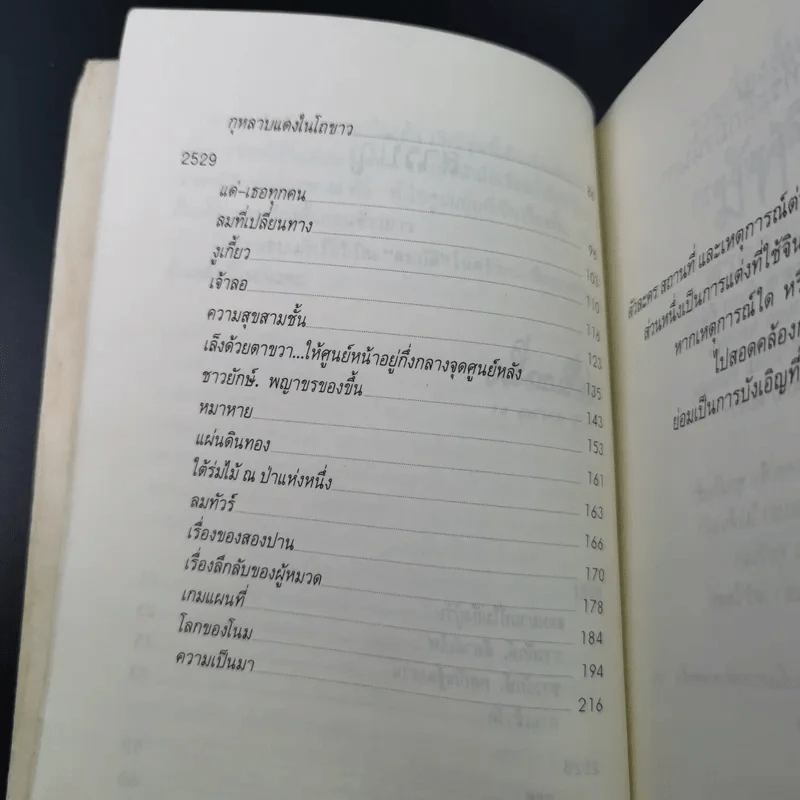 กุหลาบแดงในโถขาว 86
2529
แด่-เธอทุกคน 96
ลมที่เปลี่ยนทาง 103
งูเกี้ยว 110
เจ้าลอ 116
ความสุขสามชั้น 123
เล็งด้วยตาขวา...ให้ศูนย์หน้าอยู่กึ่งกลางจุดศูนย์หลัง 135
ชาวยักษ์. พญาขรของขึ้น 143
หมาหาย 153
แผ่นดินทอง 161
ใต้ร่มไม้ ณ ป่าแห่งหนึ่ง 163
ลมทัวร์ 166
เรื่องของสองปาน 170
เรื่องลึกลับของผู้หมวด 178
เกมแผนที่ 184
โลกของโนม 194
ความเป็นมา 216
ตัวละคร สถานที่ และเหตุการณ์
ส่วนหนึ่งเป็นการแต่งที่ใช้
หากเหตุการณ์ใด
ไปสอดคล้อง
ย่อมเป็นการบังเอิญที่